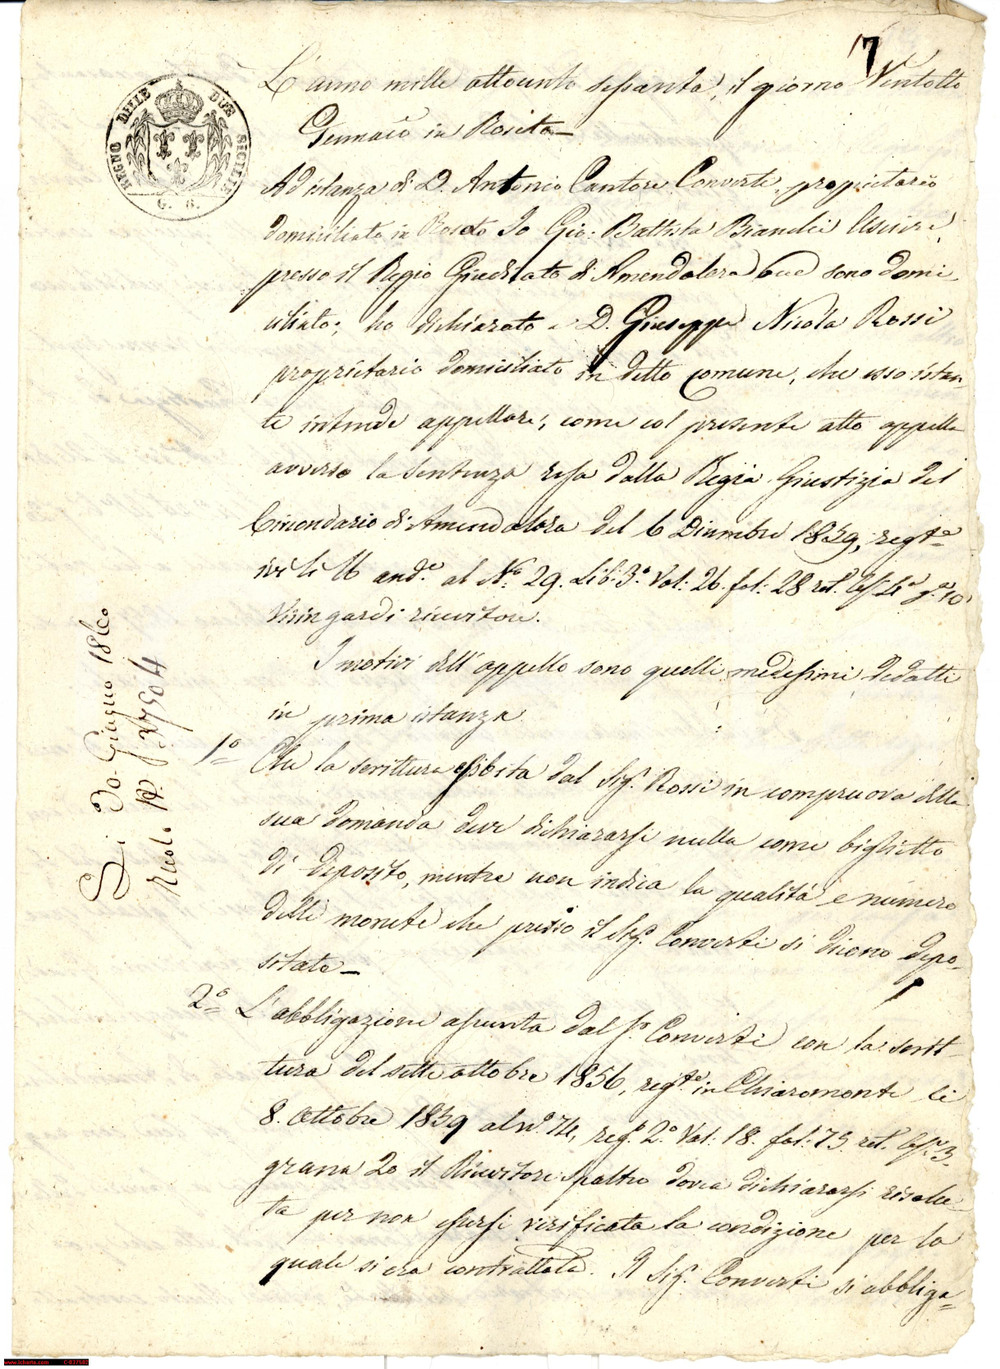 7
REGNO DELLE DUE SICILIE
G. 8.
L'anno mille ottocento sessanta, il giorno Ventotto
Gennaio in Roseto
Ad istanza di D. Antonio Cantore Converti, proprietario
domiciliato in Roseto Io Gio: Battista Bianchi Usciere
presso il Regio Giudicato di Amendolara ove sono domi-
ciliato; ho dichiarato a D. Giuseppe Nicola Rossi
proprietario domiciliato in detto Comune, che esso istan-
te intende appellare, come col presente atto appella
avverso la Sentenza resa dalla Regia Giustizia del
Circondario di Amendolara del 6 Dicembre 1859, regta
ivi li 16 and.e al No 29. Lib: 3o Vol: 26. fol: 28 ret.
ricevitore.
I motivi dell'appello sono quelli medesimi dedotti
in prima istanza
1o Che la scrittura esibita dal Sigr. Rossi in compruova della
sua domanda deve dichiararsi nulla come biglietto
di deposito, mentre non indica la qualità e numero
delle monete che presso il Sigr. Converti si dicono depo-
sitate
2o L'obbligazione assunta dal Sr. Converti con la scrit-
tura del sette ottobre 1856, regta in Chiaromonte li
8. Ottobre 1859 al no. 74, reg. 2o Vol: 18. fol: 75. ret.
grana 20 il Ricevitore Spaltro dovea dichiararsi risolu-
ta per non essersi verificata la condizione per la
quale si era contrattata. Il Sigr. Converti si obbliga-
Giugno 1860